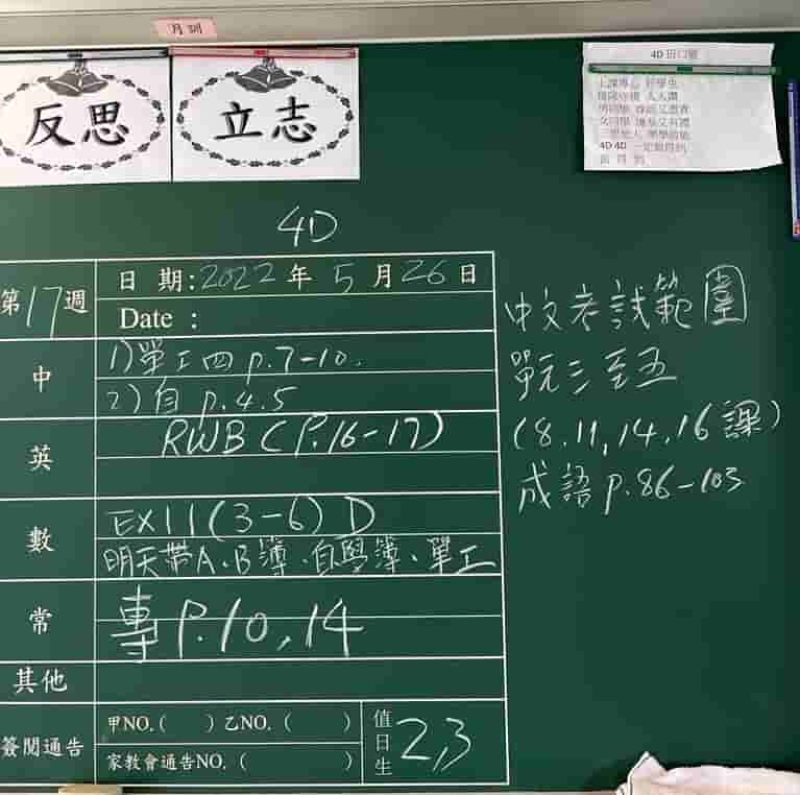 月訓
反思
立志
4D 班口號
4D
第17週
日 期:2022年 5月26日
Date :
中
1)單工四 p.7-10.
2)自 p.4.5
英
RWB (P.16-17)
數
EX11(3-6) D
明天帶A、B簿、自學簿、單工
常
專 P.10,14
其他
簽閱通告
甲NO.( )乙NO.( )
家教會通告NO.( )
值日生
2,3
中文考試範圍
單元三至五
(8.11,14,16課)
成語 p.86-103